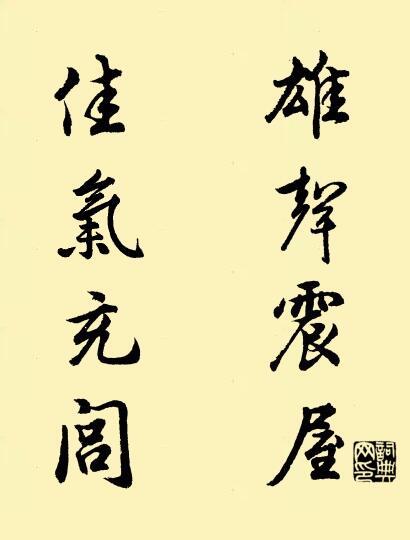 雄聲震屋
佳氣充閭
詞典
网印